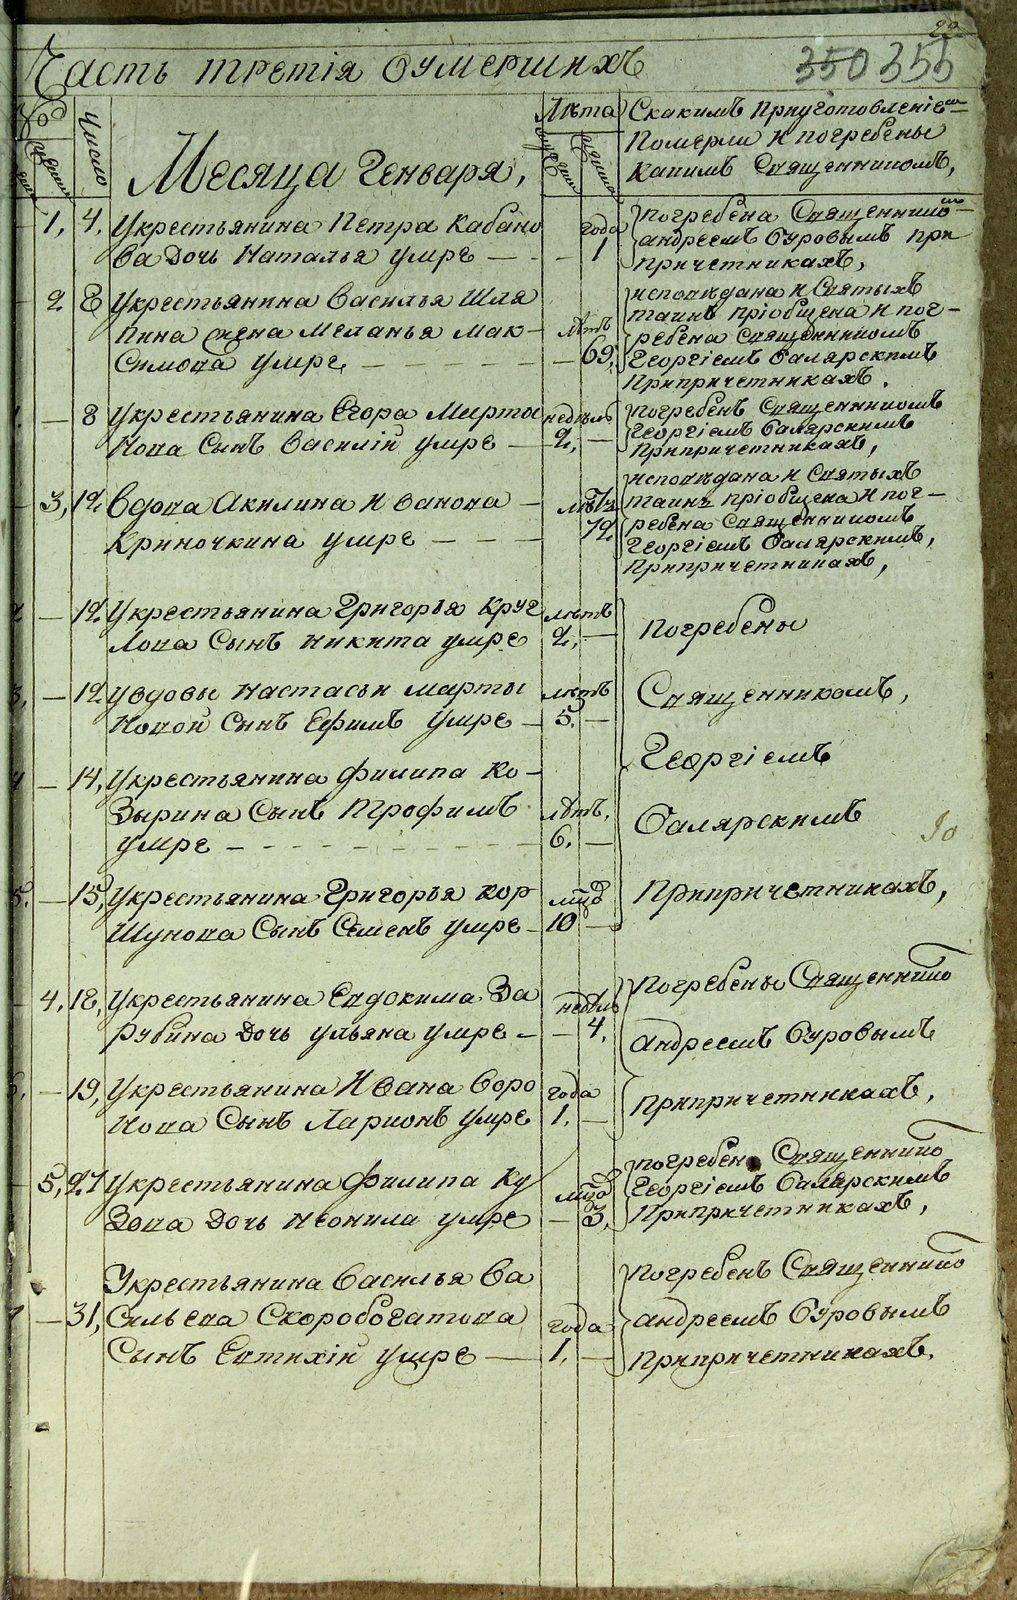 METRIKI.GASO-URAL.RU
Часть третія оумершихъ
350 355
Число
Месяца Генваря,
Лѣта
Скакимъ Приуготовленіем
Померли и погребены
какимъ Священникомъ,
1, 4, Укрестьянина Петра Кабано
ва Дочь Наталья умре — года 1
погребена Священнико
андреемъ Суровымъ при
причетникахъ,
2. 8 Укрестьянина Василья Шля
пина жена Меланья Мак-
симова умре — лѣтъ 69,
исповѣдана и Святыхъ
таинъ пріобщена и пог-
ребена Священникомъ
Георгіемъ Салярскимъ
Припричетникахъ.
1. — 8 Укрестьянина Егора Марты
нова Сынъ Василій умре — недѣль 2, —
погребенъ Священникомъ
Георгіемъ Салярскимъ
Припричетникахъ,
3, 12. Вдова Акилина Иванова —
Криночкина умре — лѣтъ 72
исповѣдана и Святыхъ
таинъ пріобщена и пог-
ребена Священникомъ
Георгіемъ Салярскимъ,
Припричетникахъ,
2 — 12. Укрестьянина Григорья Круг
лова Сынъ Никита умре лѣтъ 2, —
3, — 12. Увдовы Настасьи Марты
новой Сынъ Ефимъ умре — лѣтъ 5. —
4 — 14, Укрестьянина Филипа Ко-
зырина Сынъ Трофимъ
умре — лѣтъ, 6. —
5. — 15, Укрестьянина Григорья Кор
шунова Сынъ Семенъ умре — мцъ 10 —
Погребены
Священникомъ,
Георгіемъ
Салярскимъ
Припричетникахъ,
4, 18, Укрестьянина Евдокима За
рубина Дочь ульяна умре — недѣль 4,
6, — 19, Укрестьянина Ивана Воро
нова Сынъ Ларионъ умре года 1, —
Погребены Священнико
андреемъ Суровымъ
Припричетникахъ,
5, 27 Укрестьянина Филипа Ку
зова Дочь Неонила умре — мца 3,
погребена Священнико
Георгіемъ Салярскимъ
Припричетникахъ,
7 — 31, Укрестьянина Василья Ва
сильева Скоробогатова
Сынъ Евтихій умре — года 1, —
Погребенъ Священнико
андреемъ Суровымъ
Припричетникахъ.
METRIKI.GASO-URAL.RU
METRIKI.GASO-URAL.RU